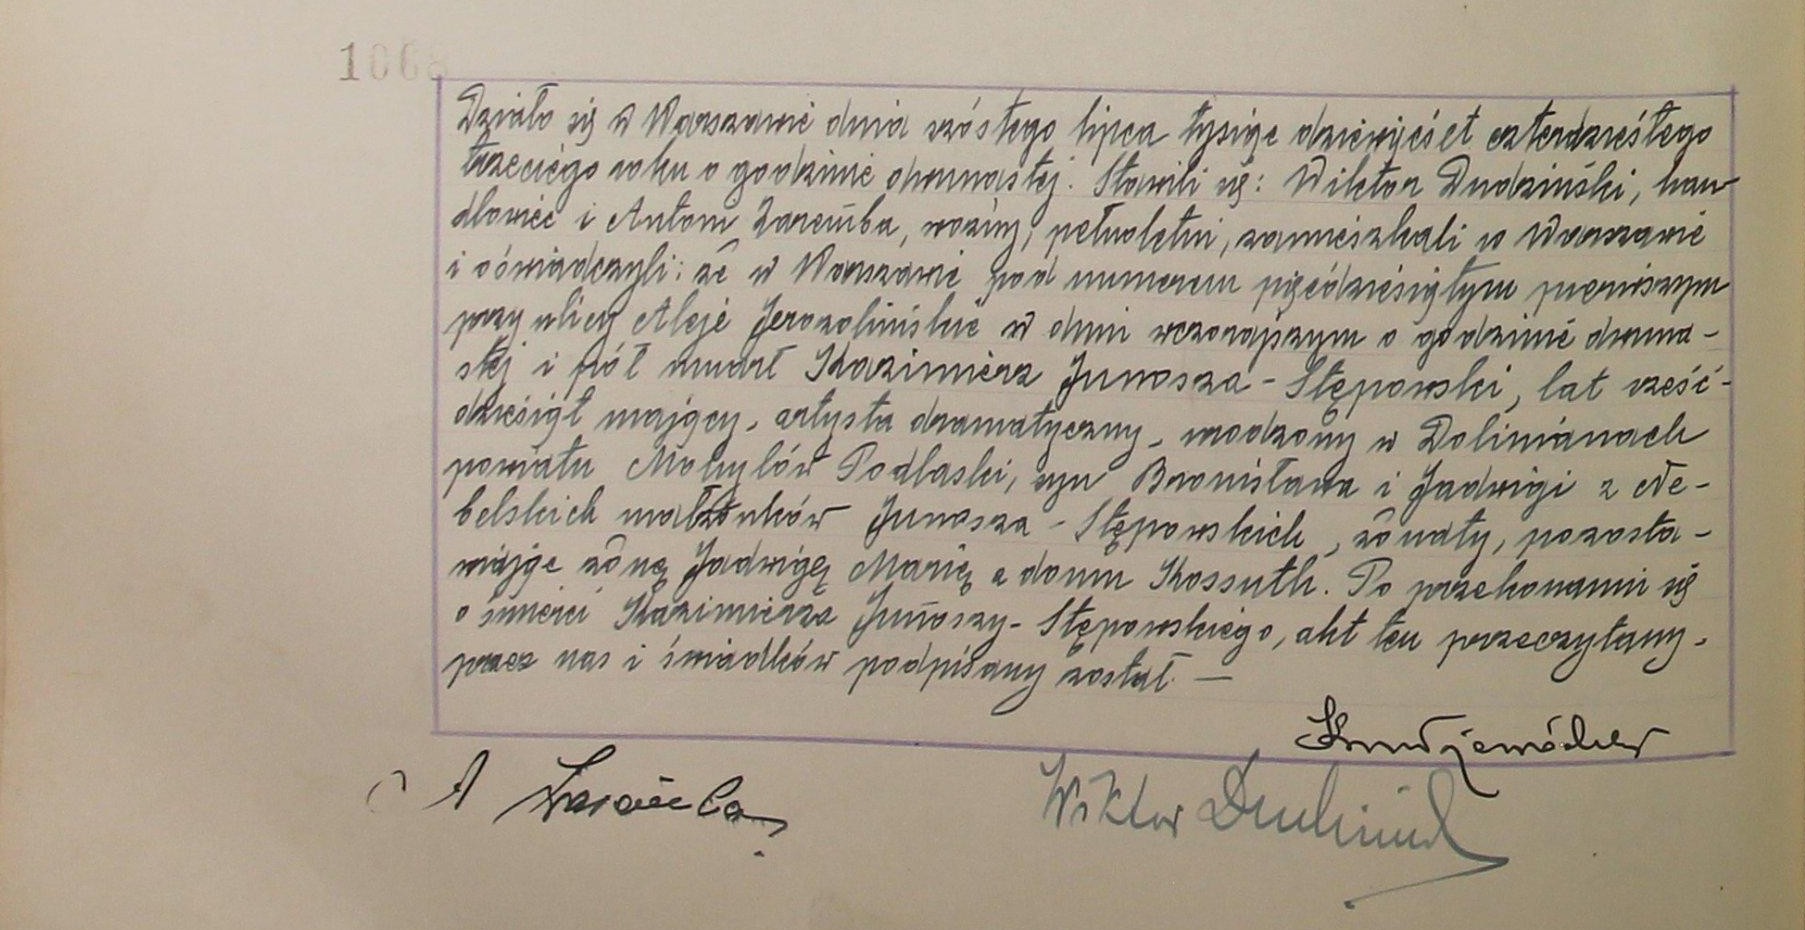 1068
Działo się w Warszawie dnia szóstego lipca tysiąc dziewięćset czterdziestego
trzeciego roku o godzinie dwunastej. Stawili się: Wiktor Dudziński, han
dlowiec i Antoni Zaremba, woźny, pełnoletni, zamieszkali w Warszawie
i oświadczyli: że w Warszawie pod numerem pięćdziesiątym pierwszym
przy ulicy Aleje Jerozolimskie w dniu wczorajszym o godzinie dwuna-
stej i pół umarł Kazimierz Junosza-Stępowski, lat sześć-
dziesiąt mający, artysta dramatyczny, urodzony w Dolinianach
powiatu Mohylów Podlaski, syn Bronisława i Jadwigi z Ne-
belskich małżonków Junosza-Stępowskich, żonaty, pozosta-
wiając żonę Jadwigę Marię z domu Kossuth. Po przekonaniu się
o śmierci Kazimierza Junoszy-Stępowskiego, akt ten przeczytany,
przez nas i świadków podpisany został —
A Zaremba
Wiktor Dudziński